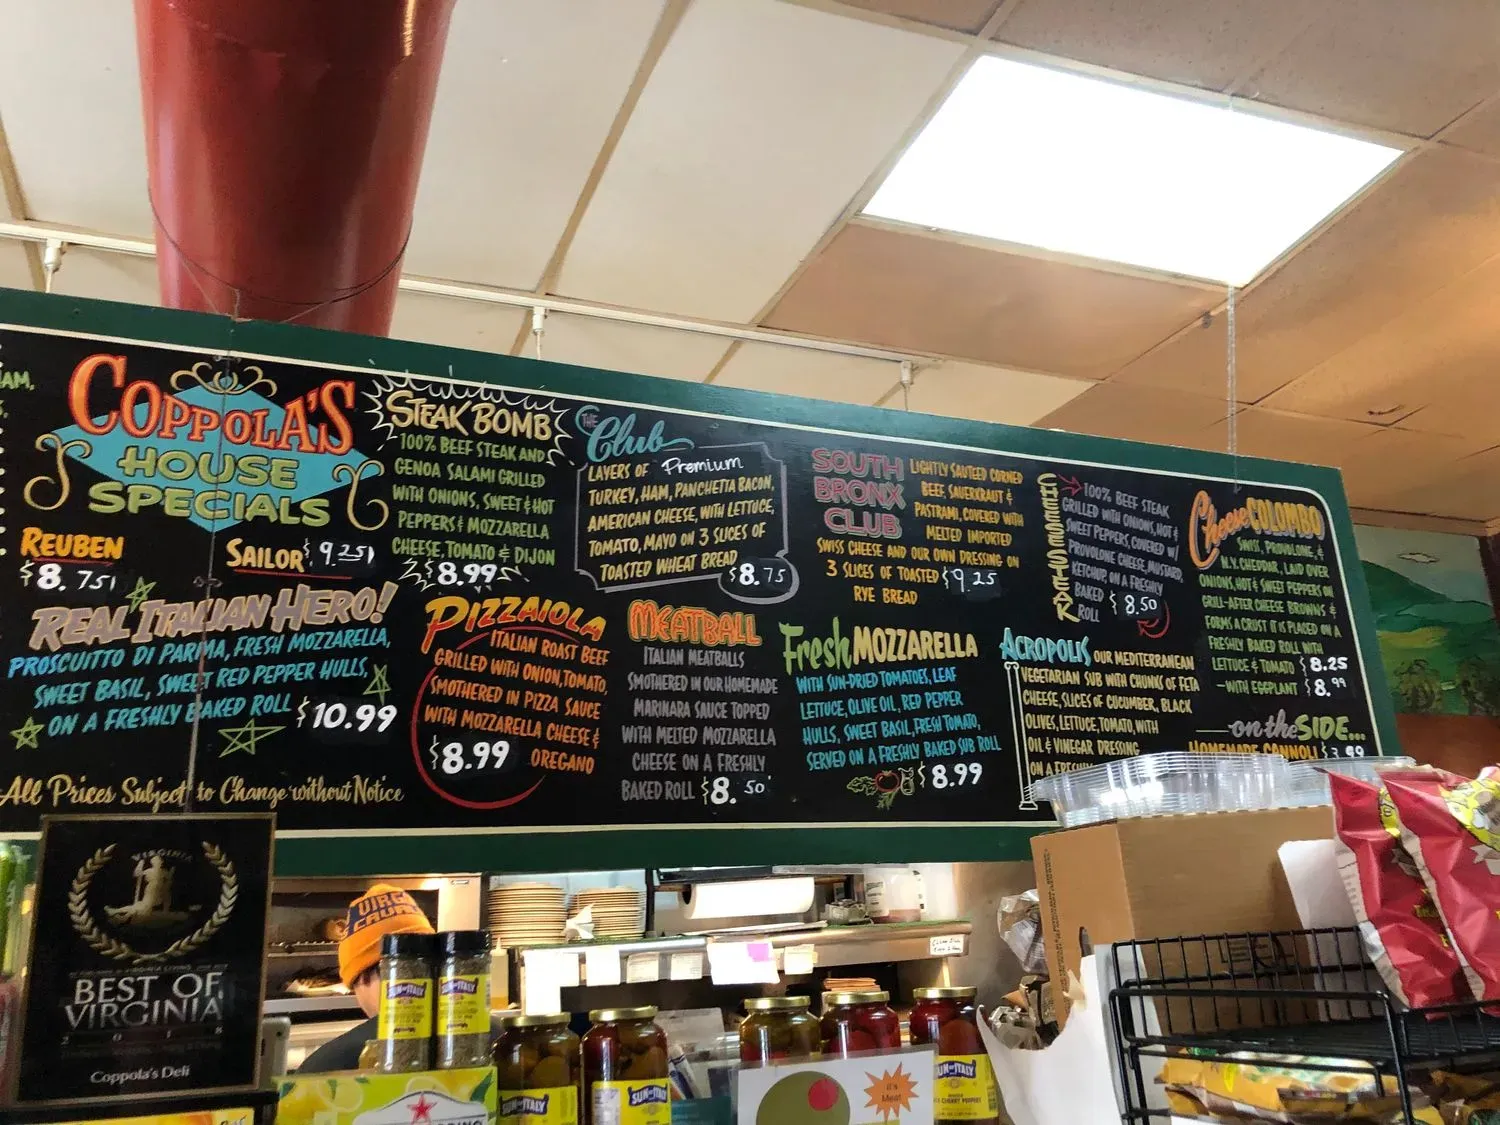 AM,
COPPOLA'S
HOUSE
SPECIALS
REUBEN
$8.75
SAILOR $9.25
REAL ITALIAN HERO!
PROSCUITTO DI PARMA, FRESH MOZZARELLA,
SWEET BASIL, SWEET RED PEPPER HULLS,
ON A FRESHLY BAKED ROLL $10.99
All Prices Subject to Change without Notice
STEAK BOMB
100% BEEF STEAK AND
GENOA SALAMI GRILLED
WITH ONIONS, SWEET & HOT
PEPPERS & MOZZARELLA
CHEESE, TOMATO & DIJON
$8.99
PIZZAIOLA
ITALIAN ROAST BEEF
GRILLED WITH ONION, TOMATO,
SMOTHERED IN PIZZA SAUCE
WITH MOZZARELLA CHEESE &
$8.99 OREGANO
THE Club
LAYERS OF Premium
TURKEY, HAM, PANCHETTA BACON,
AMERICAN CHEESE, WITH LETTUCE,
TOMATO, MAYO ON 3 SLICES OF
TOASTED WHEAT BREAD
$8.75
MEATBALL
ITALIAN MEATBALLS
SMOTHERED IN OUR HOMEMADE
MARINARA SAUCE TOPPED
WITH MELTED MOZZARELLA
CHEESE ON A FRESHLY
BAKED ROLL $8.50
SOUTH
BRONX
CLUB
LIGHTLY SAUTEED CORNED
BEEF, SAUERKRAUT &
PASTRAMI, COVERED WITH
MELTED IMPORTED
SWISS CHEESE AND OUR OWN DRESSING ON
3 SLICES OF TOASTED $9.25
RYE BREAD
Fresh MOZZARELLA
WITH SUN-DRIED TOMATOES, LEAF
LETTUCE, OLIVE OIL, RED PEPPER
HULLS, SWEET BASIL, FRESH TOMATO,
SERVED ON A FRESHLY BAKED SUB ROLL
$8.99
CHEESESTEAK
100% BEEF STEAK
GRILLED WITH ONIONS, HOT &
SWEET PEPPERS, COVERED W/
PROVOLONE CHEESE, MUSTARD,
KETCHUP, ON A FRESHLY
BAKED $8.50
ROLL
ACROPOLIS OUR MEDITERRANEAN
VEGETARIAN SUB WITH CHUNKS OF FETA
CHEESE, SLICES OF CUCUMBER, BLACK
OLIVES, LETTUCE, TOMATO, WITH
OIL & VINEGAR DRESSING
ON A FRESHLY
Cheese COLOMBO
SWISS, PROVOLONE, &
N.Y. CHEDDAR, LAID OVER
ONIONS, HOT & SWEET PEPPERS ON
GRILL-AFTER CHEESE BROWNS &
FORMS A CRUST IT IS PLACED ON A
FRESHLY BAKED ROLL WITH
LETTUCE & TOMATO $8.25
-WITH EGGPLANT $8.99
on the SIDE...
HOMEMADE CANNOLI $3.99
VIRGINIA
BEST OF
VIRGINIA
2018
Coppola's Deli
SUN of ITALY
SUN of ITALY
SUN of ITALY
SUN of ITALY
SUN of ITALY
CHERRY PEPPERS
It's
Meat